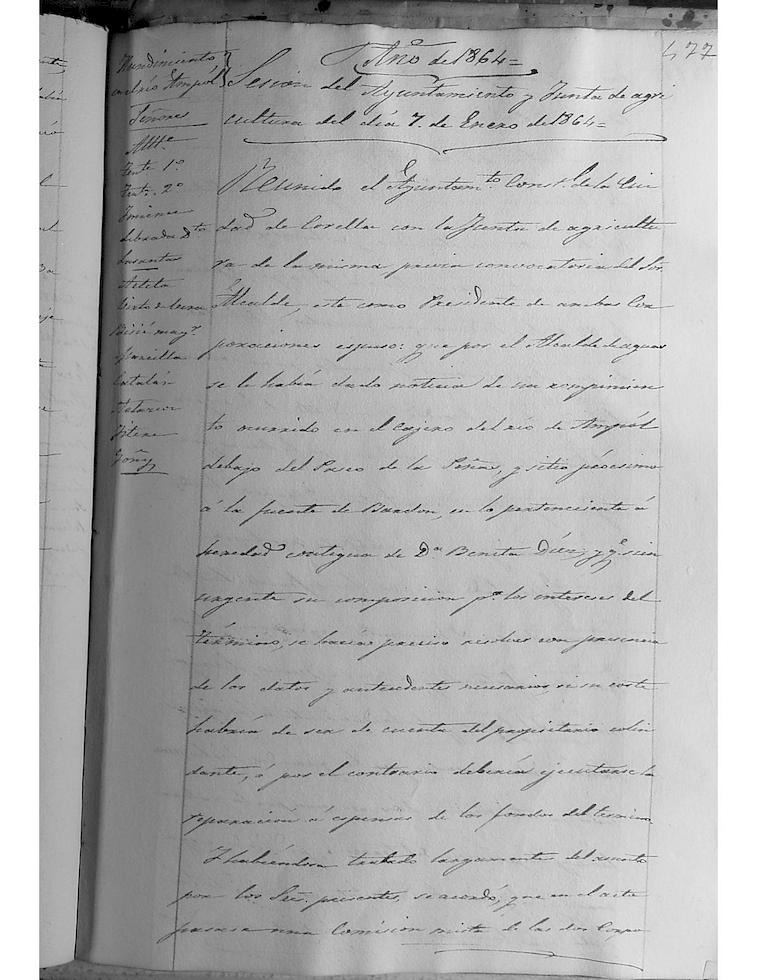 477
Año de 1864=
Hundimiento
en el río Ampól
Señores
Alle
Tente 1º
Tente 2º
Jimenez
Librada
Lasantas
Arteta
Sixto de
may.r
Catalán
Notarios
Fitero
Goñy
Sesion del Ayuntamiento y Junta de agri
cultura del dia 7. de Enero de 1864=
Reunido el Ayuntam.to Const.l de la Ciu
dad de Corella con la Junta de agricultu
ra de la misma previa convocatoria del Sor.
Alcalde, este como Presidente de ambas Cor
poraciones espuso: que por el Alcalde de aguas
se le habia dado noticia de un rompimien
to ocurrido en el cajero del rio de Ampól
debajo del Paseo de la Peñas, y sitio prócsimo
á la fuente de Bardon, en lo perteneciente á
heredad contigua de Dª Benita Díez; y q.e era
urgente su composicion p.a los intereses del
término, se hacia preciso resolver con presencia
de los datos y antecedentes necesarios si su coste
habria de ser de cuenta del propietario colin
dante, ó por el contrario deberia ejecutarse la
reparacion á espensas de los fondos del termino.
Y habiéndose tratado largamente del asunto
por los Señ. presentes, se acordó, que en el acto
pasase una Comision mista de las dos Corpo